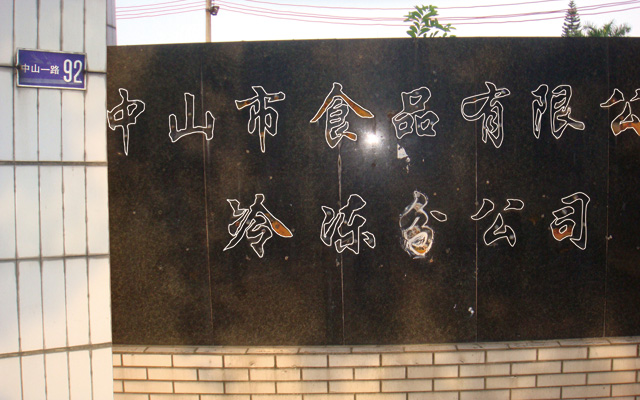 中山一路 92
中山市食品有限公
冷冻分公司